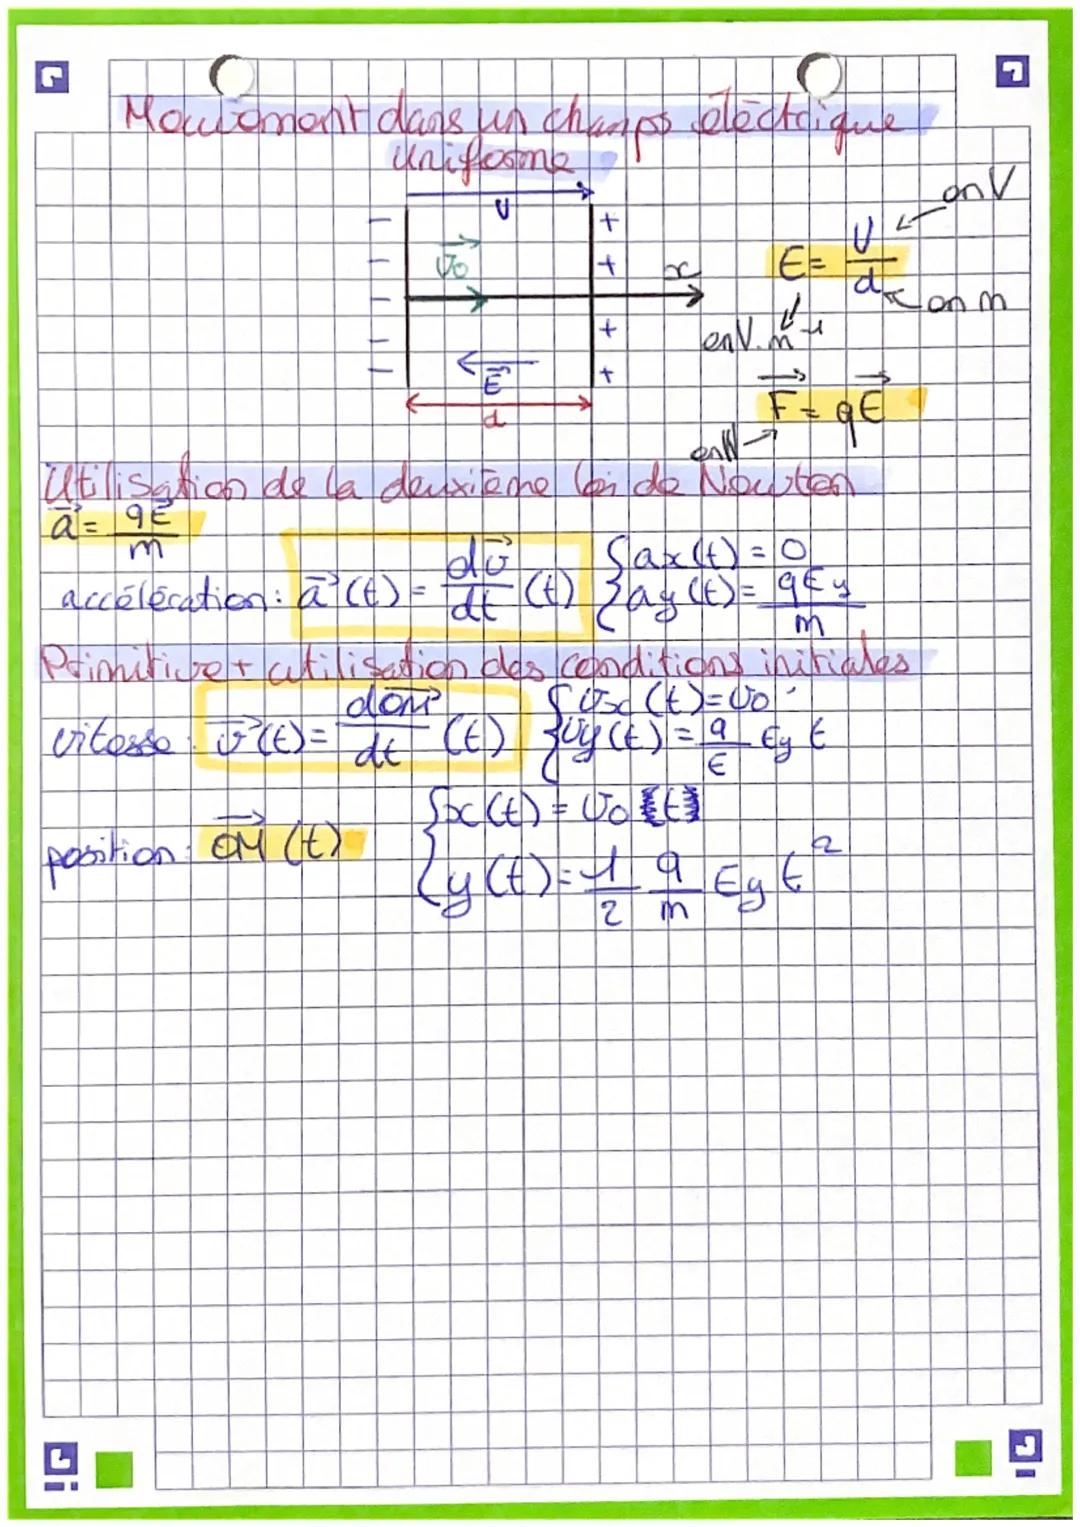 Mouvement dans un champs électrique
uniforme
U
- - - - -
+ + + +
v₀
x
E
d
E = U/d
en V
en m
en V.m⁻¹
F = qE
en N
Utilisation de la deuxième loi de Newton
a = qE/m
accélération : a(t) = dv/dt (t) { ax(t) = 0
ay(t) = qEy/m
Primitive + utilisation des conditions initiales
vitesse : v(t) = dOM/dt (t) { vx(t) = v₀
vy(t) = q/E Ey t
position : OM (t) { x(t) = v₀ (t)
y(t) = 1/2 q/m Ey t²